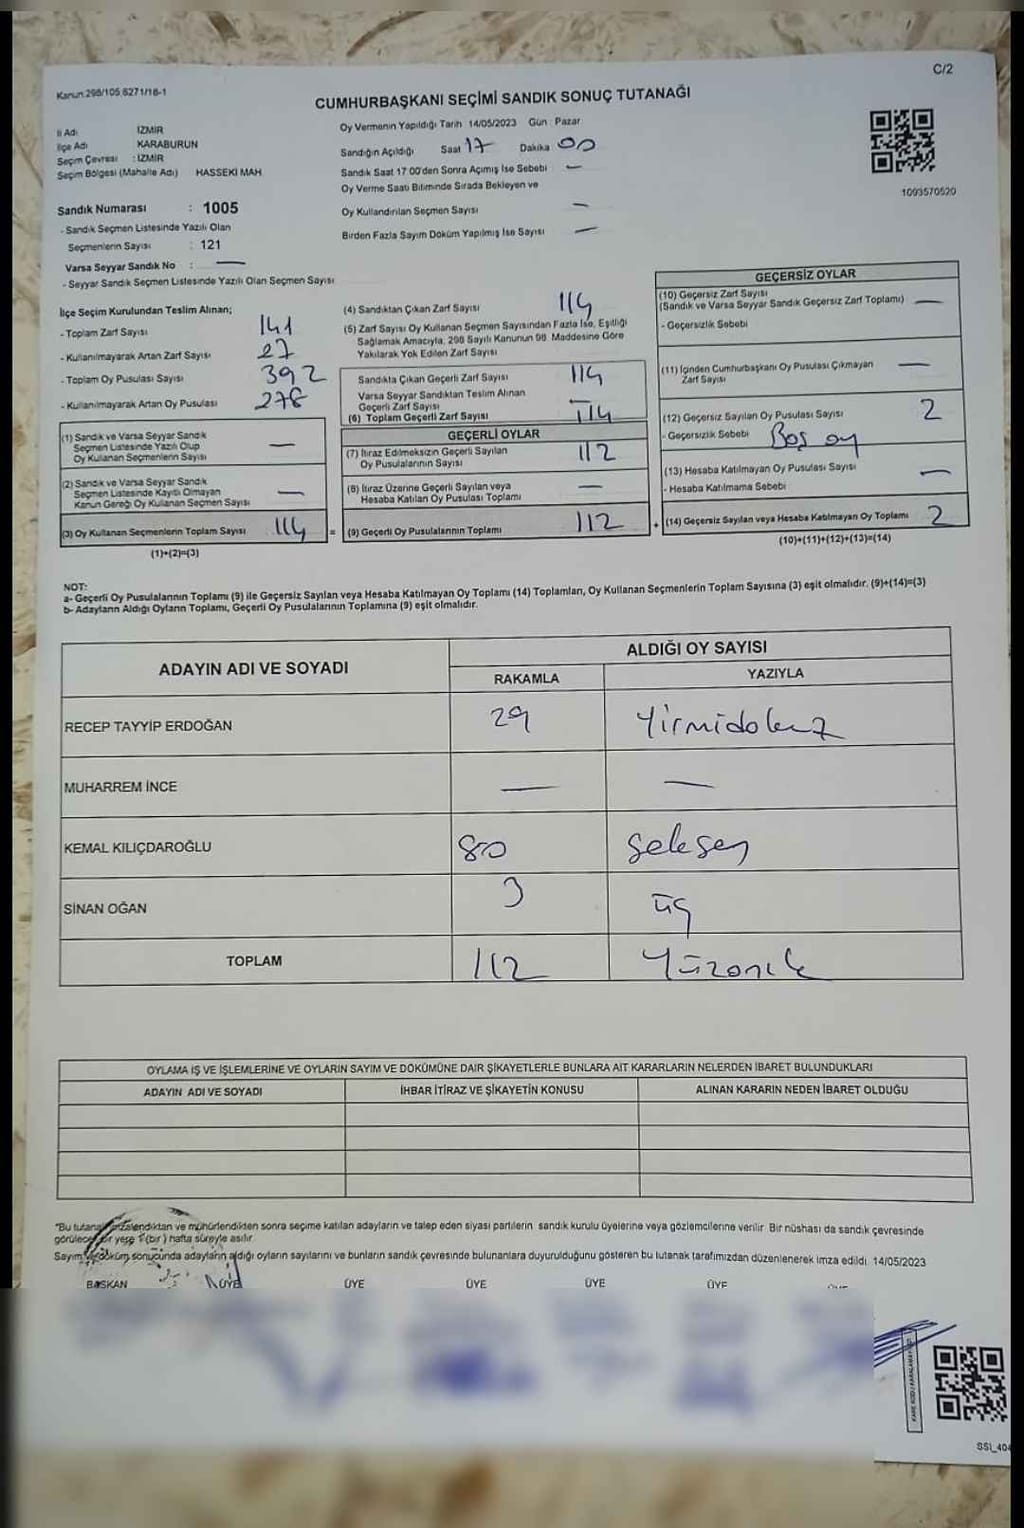 C/2
Kanun:298/105,6271/18-1
CUMHURBAŞKANI SEÇİMİ SANDIK SONUÇ TUTANAĞI
İl Adı : İZMİR
İlçe Adı : KARABURUN
Seçim Çevresi : İZMİR
Seçim Bölgesi (Mahalle Adı) HASSEKİ MAH.
Sandık Numarası : 1005
- Sandık Seçmen Listesinde Yazılı Olan
Seçmenlerin Sayısı : 121
Varsa Seyyar Sandık No : —
- Seyyar Sandık Seçmen Listesinde Yazılı Olan Seçmen Sayısı
Oy Vermenin Yapıldığı Tarih 14/05/2023 Gün : Pazar
Sandığın Açıldığı Saat 17 Dakika 00
Sandık Saat 17:00'den Sonra Açımış İse Sebebi —
Oy Verme Saati Bitiminde Sırada Bekleyen ve
Oy Kullandırılan Seçmen Sayısı —
Birden Fazla Sayım Döküm Yapılmış İse Sayısı —
1093570520
İlçe Seçim Kurulundan Teslim Alınan;
- Toplam Zarf Sayısı 141
- Kullanılmayarak Artan Zarf Sayısı 27
- Toplam Oy Pusulası Sayısı 392
- Kullanılmayarak Artan Oy Pusulası 278
(1) Sandık ve Varsa Seyyar Sandık
Seçmen Listesinde Yazılı Olup
Oy Kullanan Seçmenlerin Sayısı —
(2) Sandık ve Varsa Seyyar Sandık
Seçmen Listesinde Kayıtlı Olmayan
Kanun Gereği Oy Kullanan Seçmen Sayısı —
(3) Oy Kullanan Seçmenlerin Toplam Sayısı 114 =
(1)+(2)=(3)
(4) Sandıktan Çıkan Zarf Sayısı 114
(5) Zarf Sayısı Oy Kullanan Seçmen Sayısından Fazla İse, Eşitliği
Sağlamak Amacıyla, 298 Sayılı Kanunun 98. Maddesine Göre
Yakılarak Yok Edilen Zarf Sayısı
Sandıkta Çıkan Geçerli Zarf Sayısı 114
Varsa Seyyar Sandıktan Teslim Alınan
Geçerli Zarf Sayısı —
(6) Toplam Geçerli Zarf Sayısı 114
GEÇERLİ OYLAR
(7) İtiraz Edilmeksizin Geçerli Sayılan
Oy Pusulalarının Sayısı 112
(8) İtiraz Üzerine Geçerli Sayılan veya
Hesaba Katılan Oy Pusulası Toplamı —
(9) Geçerli Oy Pusulalarının Toplamı 112 +
GEÇERSİZ OYLAR
(10) Geçersiz Zarf Sayısı
(Sandık ve Varsa Seyyar Sandık Geçersiz Zarf Toplamı) —
- Geçersizlik Sebebi
(11) İçinden Cumhurbaşkanı Oy Pusulası Çıkmayan
Zarf Sayısı —
(12) Geçersiz Sayılan Oy Pusulası Sayısı 2
- Geçersizlik Sebebi Boş oy
(13) Hesaba Katılmayan Oy Pusulası Sayısı —
- Hesaba Katılmama Sebebi
(14) Geçersiz Sayılan veya Hesaba Katılmayan Oy Toplamı 2
(10)+(11)+(12)+(13)=(14)
NOT:
a- Geçerli Oy Pusulalarının Toplamı (9) ile Geçersiz Sayılan veya Hesaba Katılmayan Oy Toplamı (14) Toplamları, Oy Kullanan Seçmenlerin Toplam Sayısına (3) eşit olmalıdır. (9)+(14)=(3)
b- Adayların Aldığı Oyların Toplamı, Geçerli Oy Pusulalarının Toplamına (9) eşit olmalıdır.
ADAYIN ADI VE SOYADI ALDIĞI OY SAYISI
RAKAMLA YAZIYLA
RECEP TAYYİP ERDOĞAN 29 Yirmidokuz
MUHARREM İNCE — —
KEMAL KILIÇDAROĞLU 80 Seksen
SİNAN OĞAN 3 üç
TOPLAM 112 Yüzoniki
OYLAMA İŞ VE İŞLEMLERİNE VE OYLARIN SAYIM VE DÖKÜMÜNE DAİR ŞİKAYETLERLE BUNLARA AİT KARARLARIN NELERDEN İBARET BULUNDUKLARI
ADAYIN ADI VE SOYADI İHBAR İTİRAZ VE ŞİKAYETİN KONUSU ALINAN KARARIN NEDEN İBARET OLDUĞU
"Bu tutanak imzalandıktan ve mühürlendikten sonra seçime katılan adayların ve talep eden siyasi partilerin sandık kurulu üyelerine veya gözlemcilerine verilir. Bir nüshası da sandık çevresinde
görülecek bir yere 1 (bir) hafta süreyle asılır.
Sayım ve döküm sonucunda adayların aldığı oyların sayılarını ve bunların sandık çevresinde bulunanlara duyurulduğunu gösteren bu tutanak tarafımızdan düzenlenerek imza edildi. 14/05/2023
BAŞKAN ÜYE ÜYE ÜYE ÜYE ÜYE